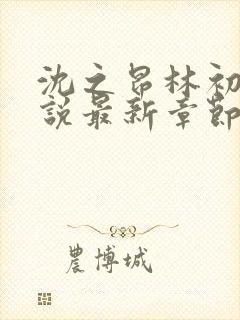 沈之昂林初
說最新章節
農博城